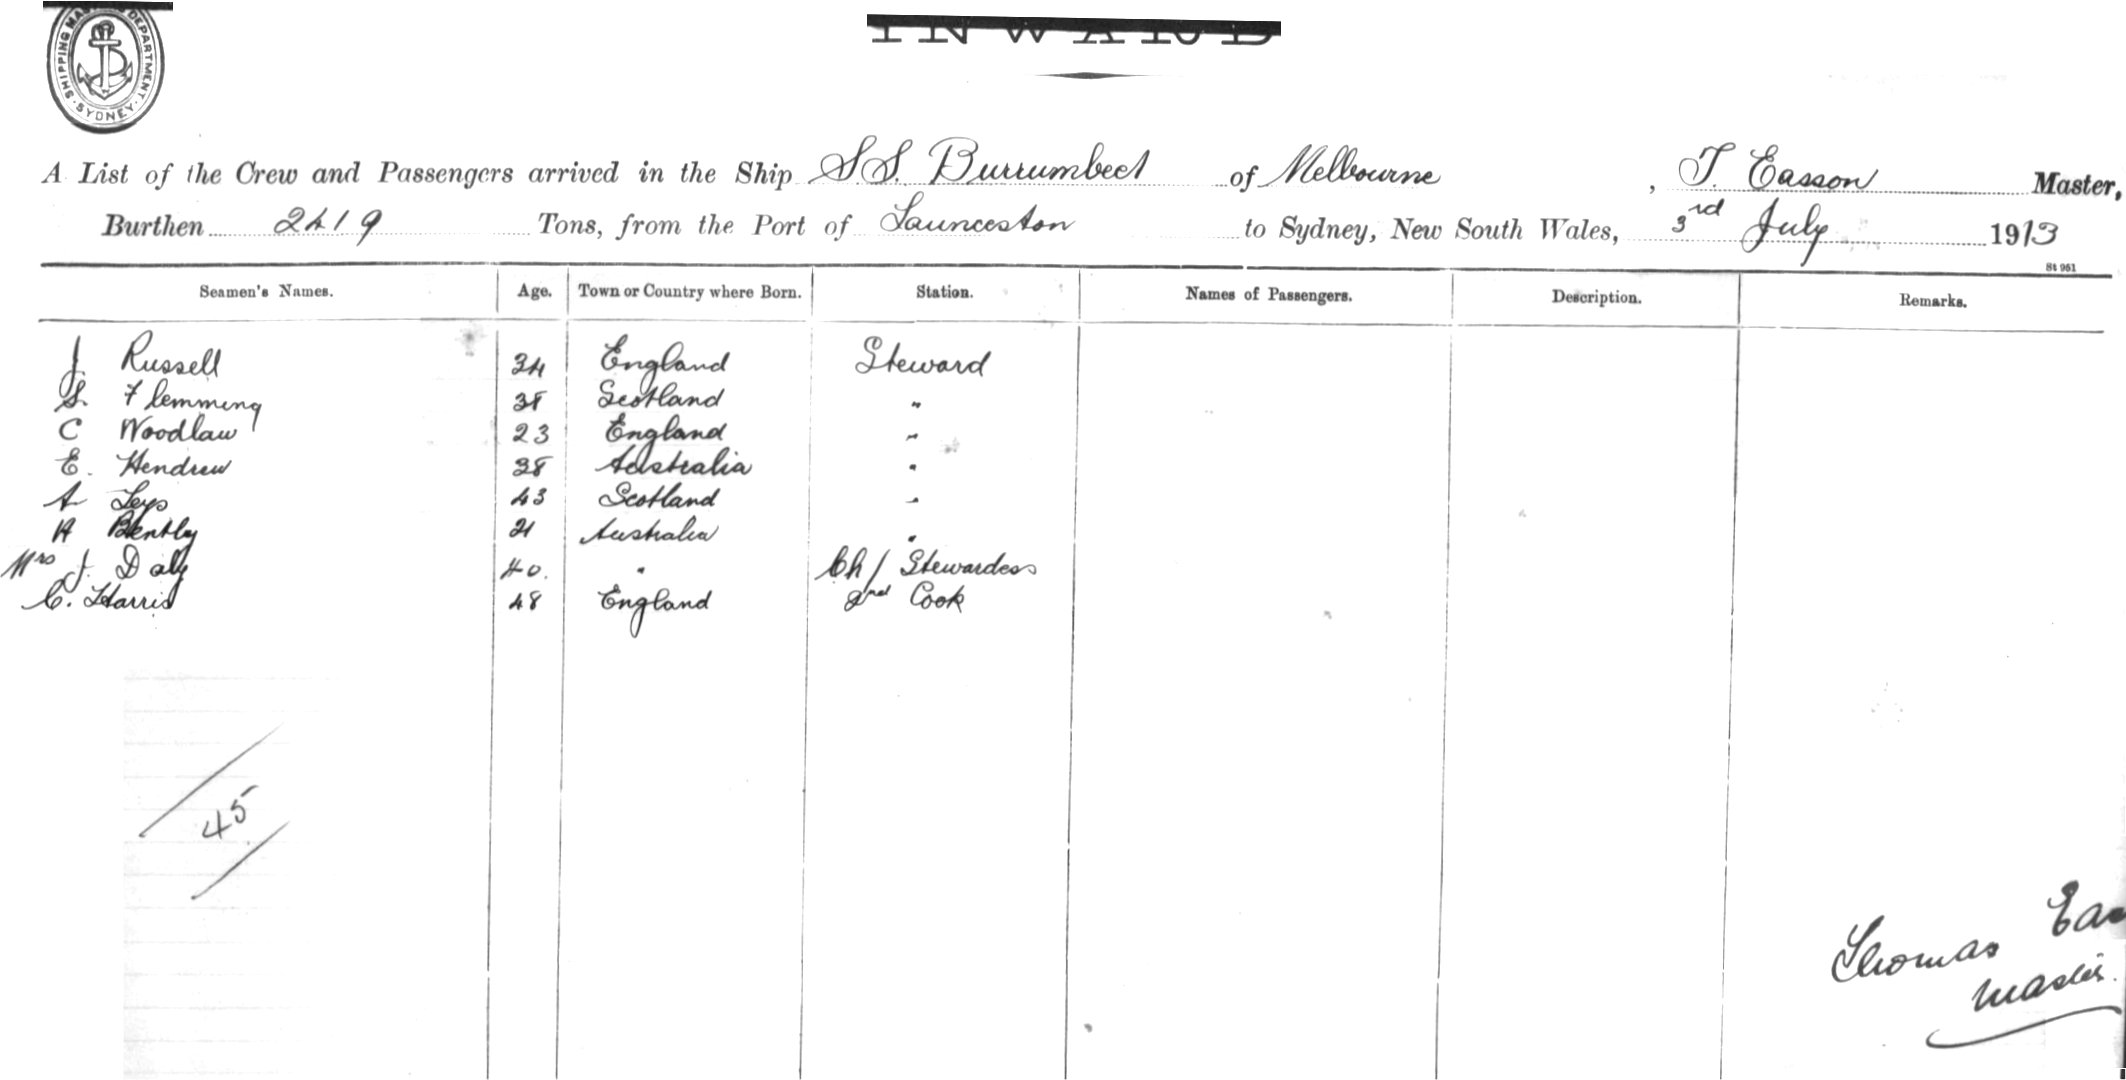 SHIPPING MASTERS DEPARTMENT. SYDNEY
INWARD
A List of the Crew and Passengers arrived in the Ship S.S. Burrumbeet of Melbourne, T. Easson Master,
Burthen 2419 Tons, from the Port of Launceston to Sydney, New South Wales, 3rd July 1913
St 961
Seamen's Names. Age. Town or Country where Born. Station. Names of Passengers. Description. Remarks.
J Russell 34 England Steward
S. Flemming 38 Scotland "
C Woodlaw 23 England "
E. Hendrew 38 Australia "
A Leys 43 Scotland "
H Bently 21 Australia "
Mrs J. Daly 40. " Ch/ Stewardess
C. Harris 48 England 2nd Cook
45
Thomas Eas
Master.